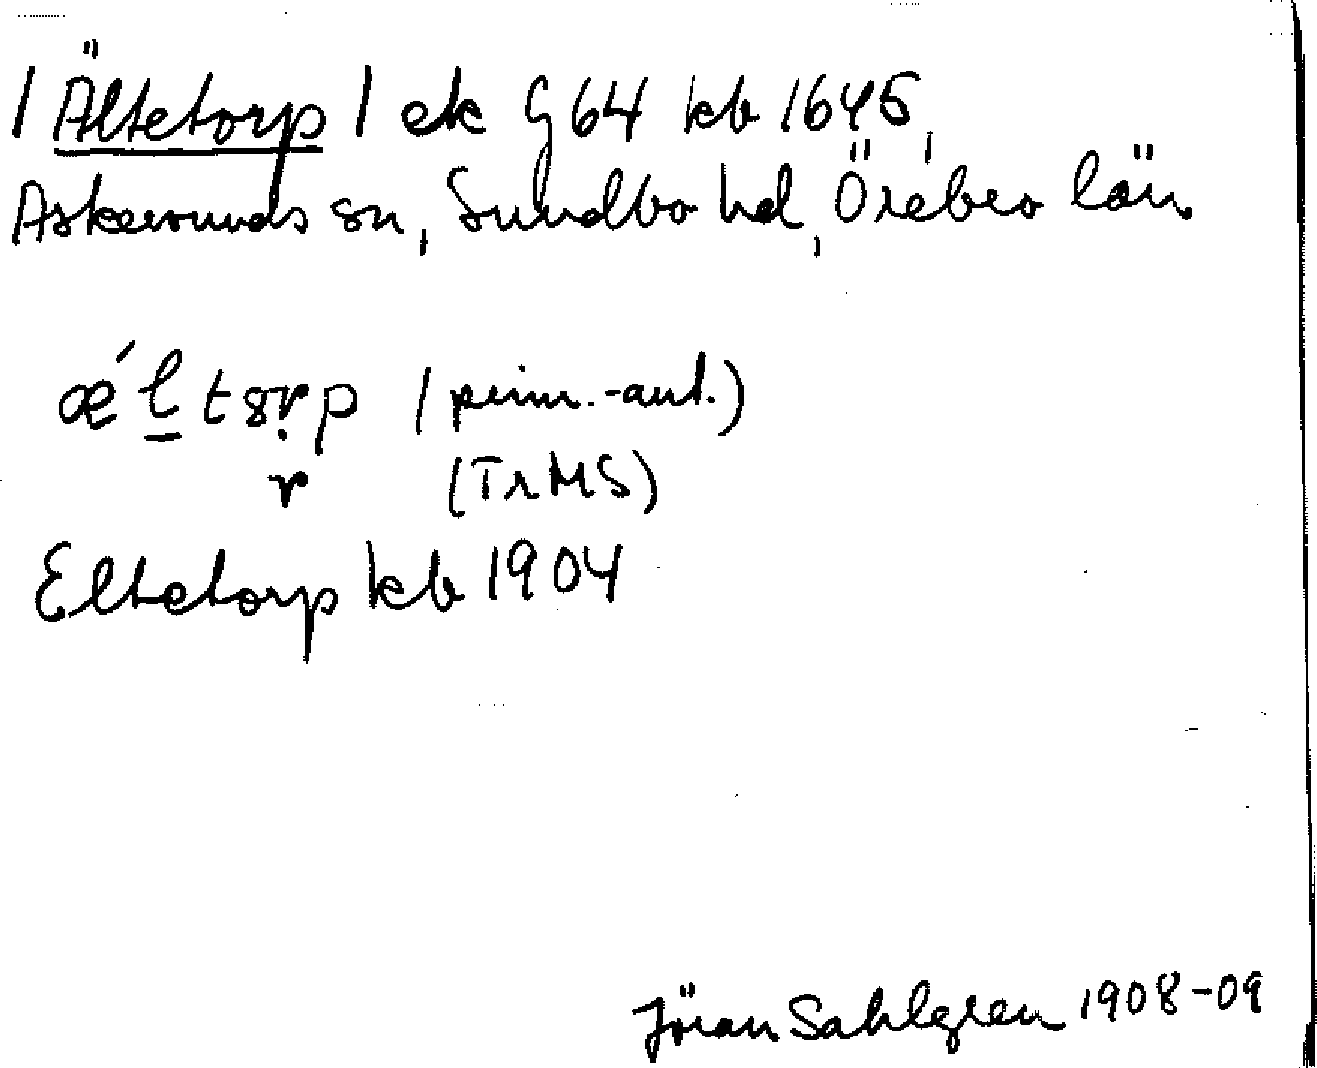 / Ältetorp / ek G64 kb 1645,
Askersunds sn, Sundbo hd, Örebro län
ǽltsr̥p (prim.-ant.)
r (TrMS)
Eltetorp kb 1904
Jöran Sahlgren 1908-09